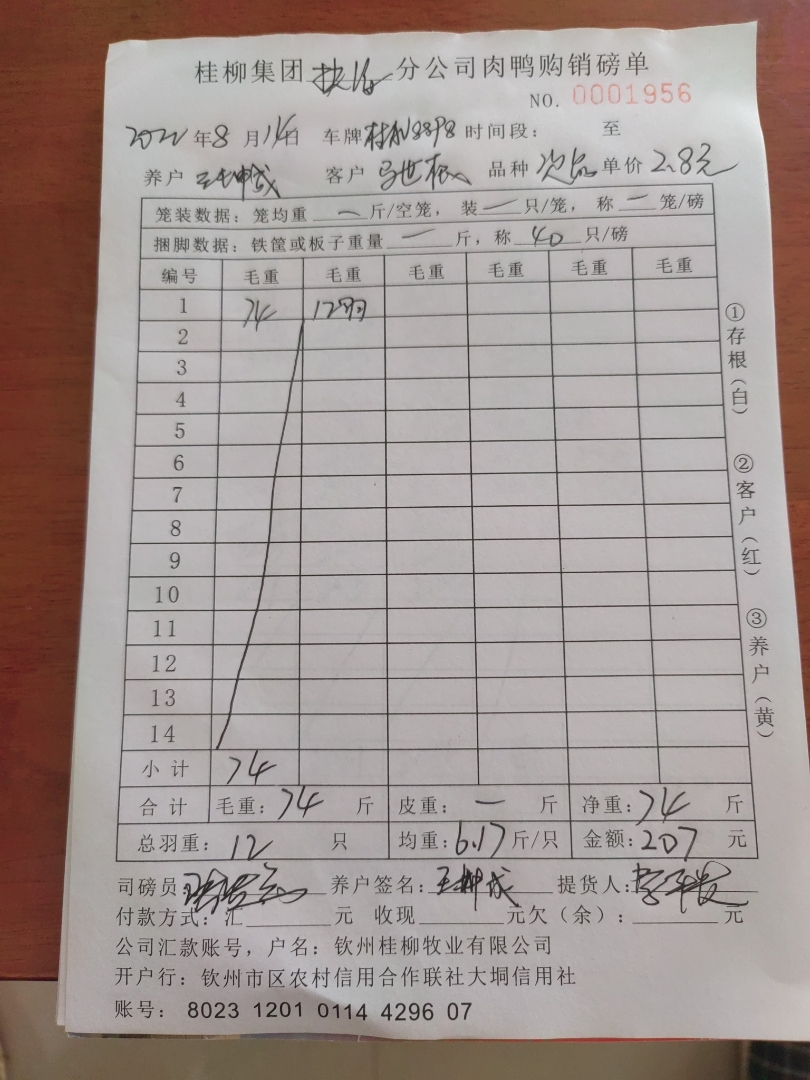 桂柳集团 分公司肉鸭购销磅单
NO. 0001956
2022年8月14日 车牌 桂N8898 时间段： 至
养户 王坤成 客户 马世根 品种 次品 单价 2.8元
笼装数据：笼均重 一 斤/空笼，装 一 只/笼，称 一 笼/磅
捆脚数据：铁筐或板子重量 一 斤，称 40 只/磅
编号 毛重 毛重 毛重 毛重 毛重 毛重
1 74 12羽
2
3
4
5
6
7
8
9
10
11
12
13
14
小计 74
合计 毛重：74 斤 皮重：一 斤 净重：74 斤
总羽重：12 只 均重：6.17斤/只 金额：207 元
司磅员： 养户签名：王坤成 提货人：
付款方式：汇______元 收现______元欠（余）：______元
公司汇款账号，户名：钦州桂柳牧业有限公司
开户行：钦州市区农村信用合作联社大垌信用社
账号： 8023 1201 0114 4296 07
①存根（白）
②客户（红）
③养户（黄）